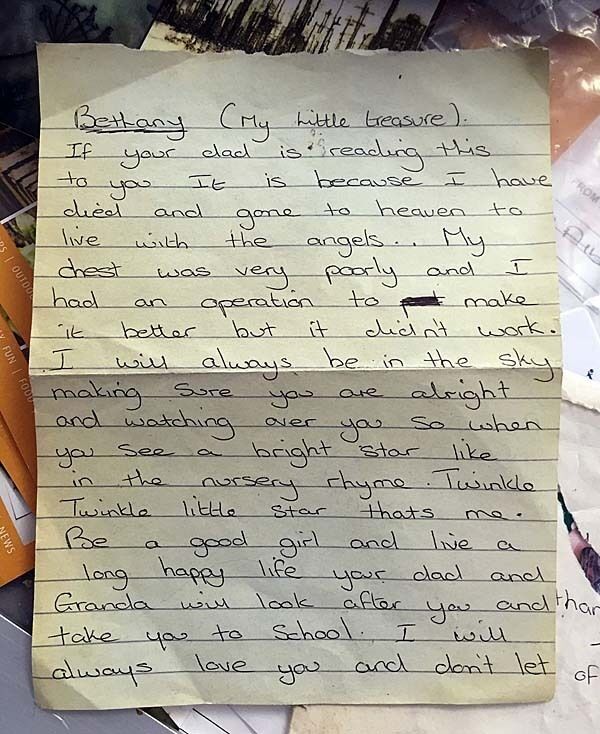 Bethany (My little treasure).
If your dad is reading this
to you It is because I have
died and gone to heaven to
live with the angels.. My
chest was very poorly and I
had an operation to make
it better but it didn't work.
I will always be in the sky
making sure you are alright
and watching over you so when
you see a bright star like
in the nursery rhyme. Twinkle
Twinkle little star thats me.
Be a good girl and live a
long happy life your dad and
Granda will look after you and
take you to School. I will
always love you and don't let
than
of
FUN | FOOD
NEWS